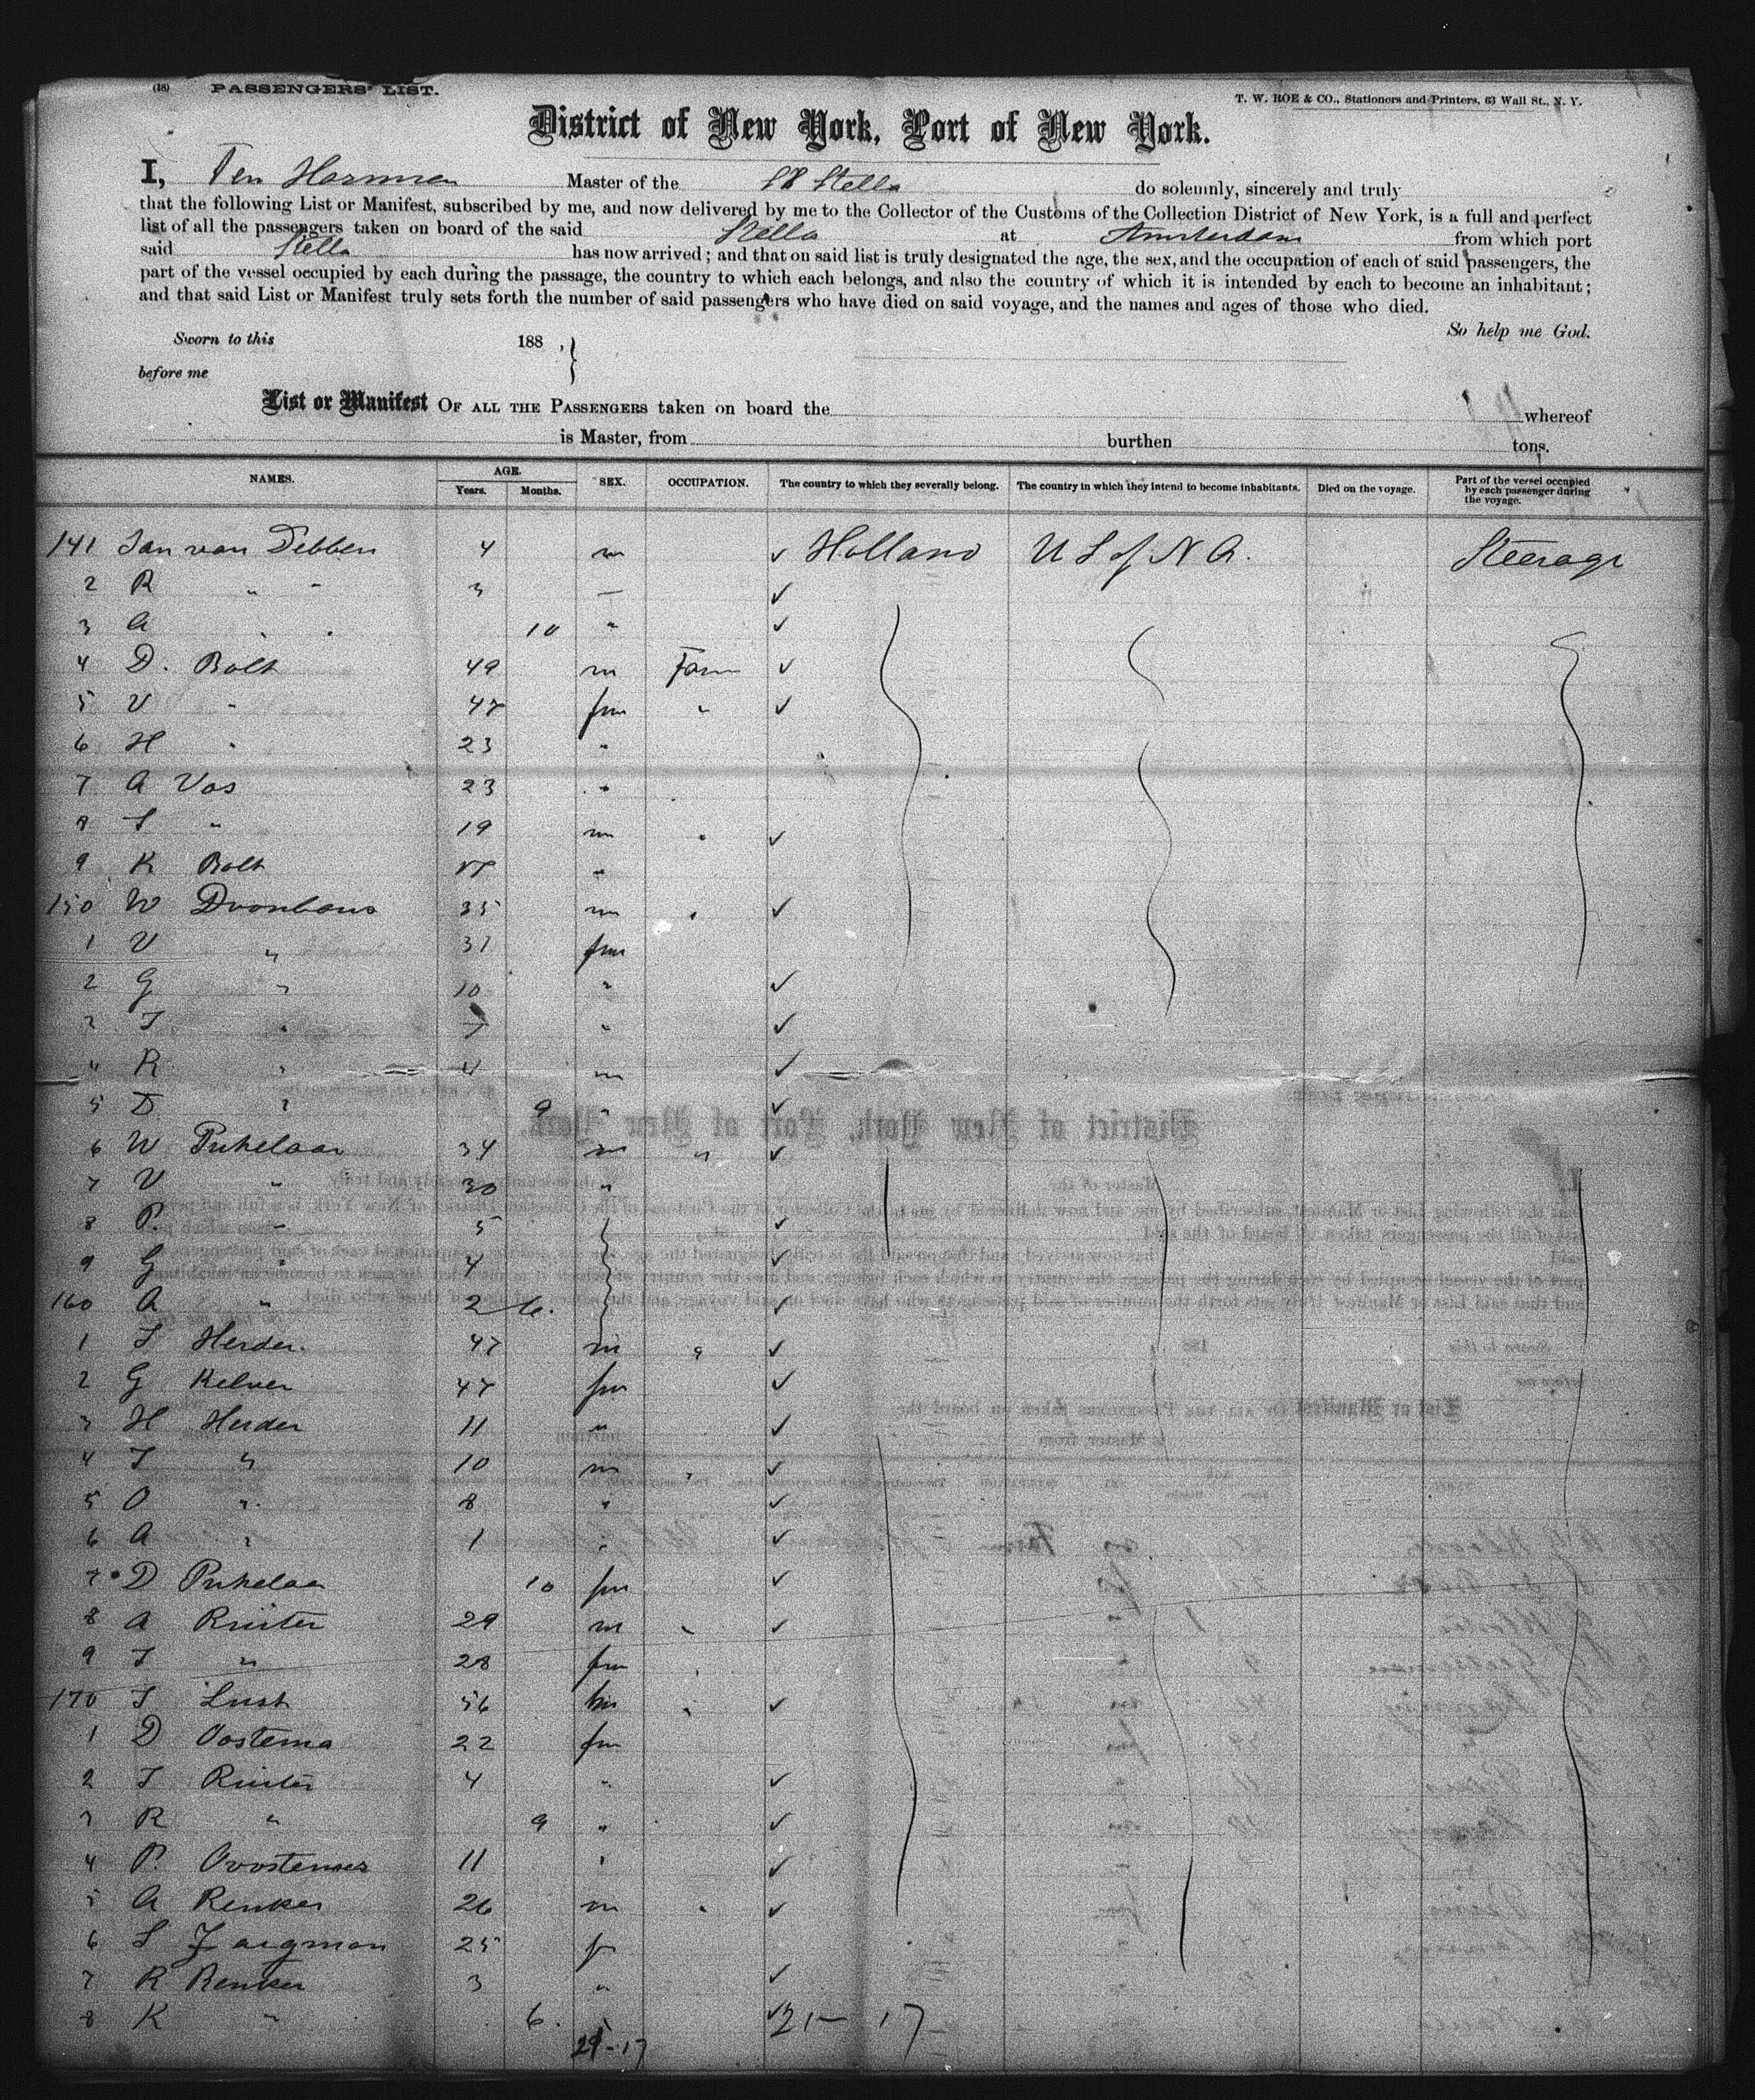 (18) PASSENGERS' LIST.
T. W. ROE & CO., Stationers and Printers, 63 Wall St., N. Y.
District of New York, Port of New York.
I, Ten Harmsen Master of the SS Stella do solemnly, sincerely and truly
that the following List or Manifest, subscribed by me, and now delivered by me to the Collector of the Customs of the Collection District of New York, is a full and perfect
list of all the passengers taken on board of the said Stella at Amsterdam from which port
said Stella has now arrived; and that on said list is truly designated the age, the sex, and the occupation of each of said passengers, the
part of the vessel occupied by each during the passage, the country to which each belongs, and also the country of which it is intended by each to become an inhabitant;
and that said List or Manifest truly sets forth the number of said passengers who have died on said voyage, and the names and ages of those who died.
So help me God.
Sworn to this 188 ,
before me
List or Manifest OF ALL THE PASSENGERS taken on board the whereof
is Master, from burthen tons.
NAMES. AGE. Years. Months. SEX. OCCUPATION. The country to which they severally belong. The country in which they intend to become inhabitants. Died on the voyage. Part of the vessel occupied by each passenger during the voyage.
141 Jan van Debben 4 m ✓ Holland U S of N A. Steerage
2 R " " 3 — ✓
3 A " " 10 " ✓
4 D. Bolt 49 m Farm ✓
5 V " 47 fm " ✓
6 H " 23 "
7 A Vos 23 "
8 S " 19 m " ✓
9 K Bolt "
150 W Doonbous 35 m " ✓
1 V " 31 fm
2 G " 10 " ✓
3 J " 7 " ✓
4 R " 4 m ✓
5 D " 9 " ✓
6 W Pukelaar 34 m " ✓
7 V " 30 "
8 P. " 5 ✓
9 G " 4 ✓
160 A " 2 6. ✓
1 J Herder. 47 m " ✓
2 G Kelver 47 fm ✓
3 H Herder 11 " ✓
4 J " 10 m " ✓
5 O " 8 " ✓
6 A " 1 " ✓
7 D Pukelaa 10 fm ✓
8 A Ruiter 29 m " ✓
9 J " 28 fm "
170 J Lust 56 m " ✓
1 D Oostema 22 fm
2 J Ruiter 4 " ✓
3 R " 9 " ✓
4 P. Oostema 11 " ✓
5 A Renker 26 m " ✓
6 S Zaigman 25 f
7 R Renker 3 " ✓
8 K " 6. ✓ 21 - 17
21-17